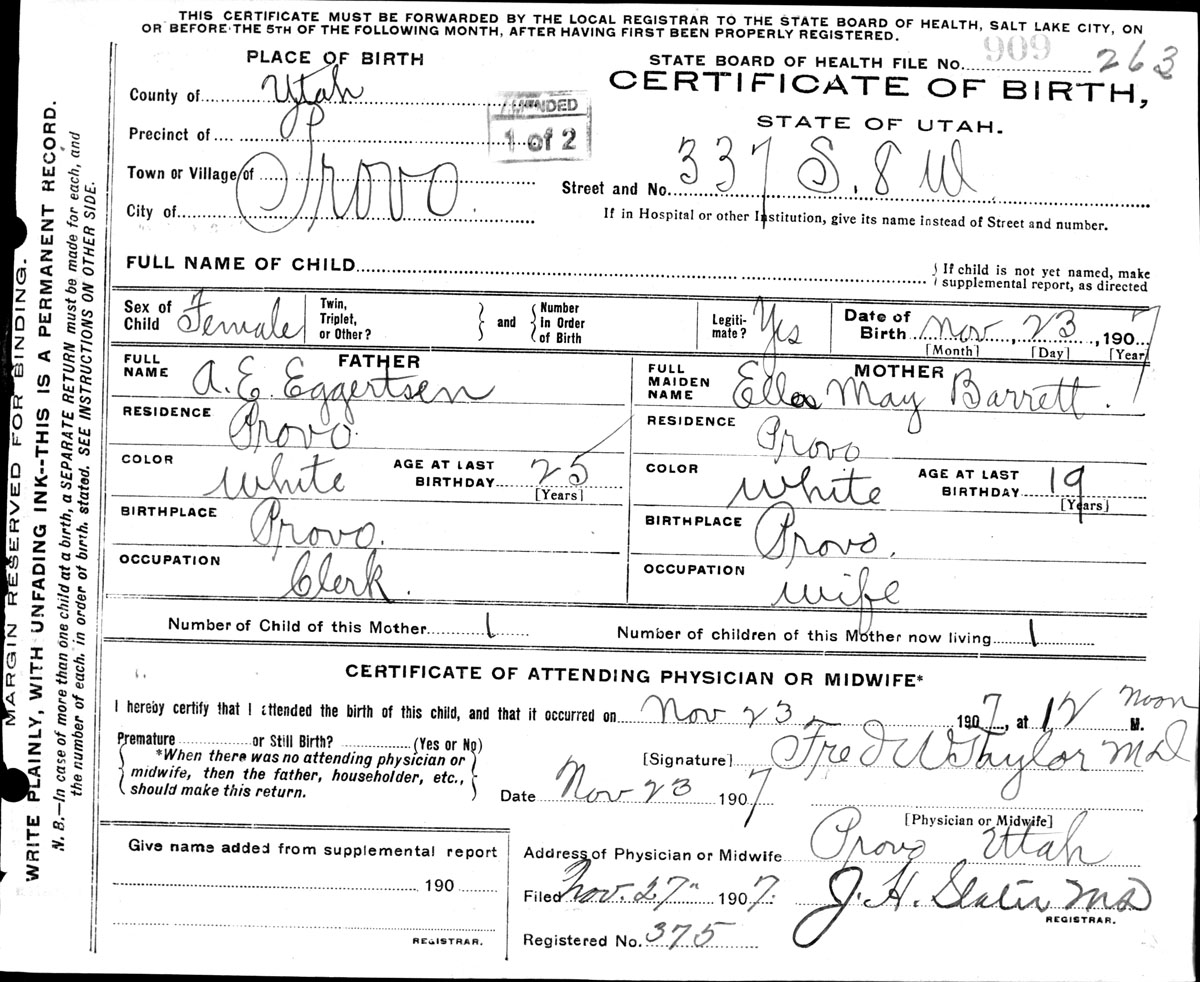 THIS CERTIFICATE MUST BE FORWARDED BY THE LOCAL REGISTRAR TO THE STATE BOARD OF HEALTH, SALT LAKE CITY, ON
OR BEFORE THE 5TH OF THE FOLLOWING MONTH, AFTER HAVING FIRST BEEN PROPERLY REGISTERED.
PLACE OF BIRTH
STATE BOARD OF HEALTH FILE No. 909 263
County of Utah
CERTIFICATE OF BIRTH,
AMENDED
1 of 2
STATE OF UTAH.
Precinct of
Town or Village of
City of Provo.
Street and No. 337 S. 8 W
If in Hospital or other Institution, give its name instead of Street and number.
FULL NAME OF CHILD
If child is not yet named, make
supplemental report, as directed
Sex of Child Female
Twin, Triplet, or Other?
and
Number in Order of Birth
Legiti-mate? Yes
Date of Birth Nov. 23, 1907
[Month] [Day] [Year]
FATHER
FULL NAME A. E. Eggertsen
RESIDENCE Provo.
COLOR White
AGE AT LAST BIRTHDAY 25
[Years]
BIRTHPLACE Provo.
OCCUPATION Clerk.
MOTHER
FULL MAIDEN NAME Ella May Barrett.
RESIDENCE Provo
COLOR White
AGE AT LAST BIRTHDAY 19
[Years]
BIRTHPLACE Provo.
OCCUPATION wife
Number of Child of this Mother 1
Number of children of this Mother now living 1
CERTIFICATE OF ATTENDING PHYSICIAN OR MIDWIFE*
I hereby certify that I attended the birth of this child, and that it occurred on Nov 23 1907, at 12 Noon M.
Premature or Still Birth? (Yes or No)
*When there was no attending physician or
midwife, then the father, householder, etc.,
should make this return.
[Signature] Fred W Taylor MD
Date Nov 23 1907
[Physician or Midwife]
Give name added from supplemental report
190
REGISTRAR.
Address of Physician or Midwife Provo Utah
Filed Nov. 27" 1907.
J. H. Slater MD
REGISTRAR.
Registered No. 375
MARGIN RESERVED FOR BINDING.
WRITE PLAINLY, WITH UNFADING INK--THIS IS A PERMANENT RECORD.
N. B.—In case of more than one child at a birth, a SEPARATE RETURN must be made for each, and
the number of each, in order of birth, stated. SEE INSTRUCTIONS ON OTHER SIDE.